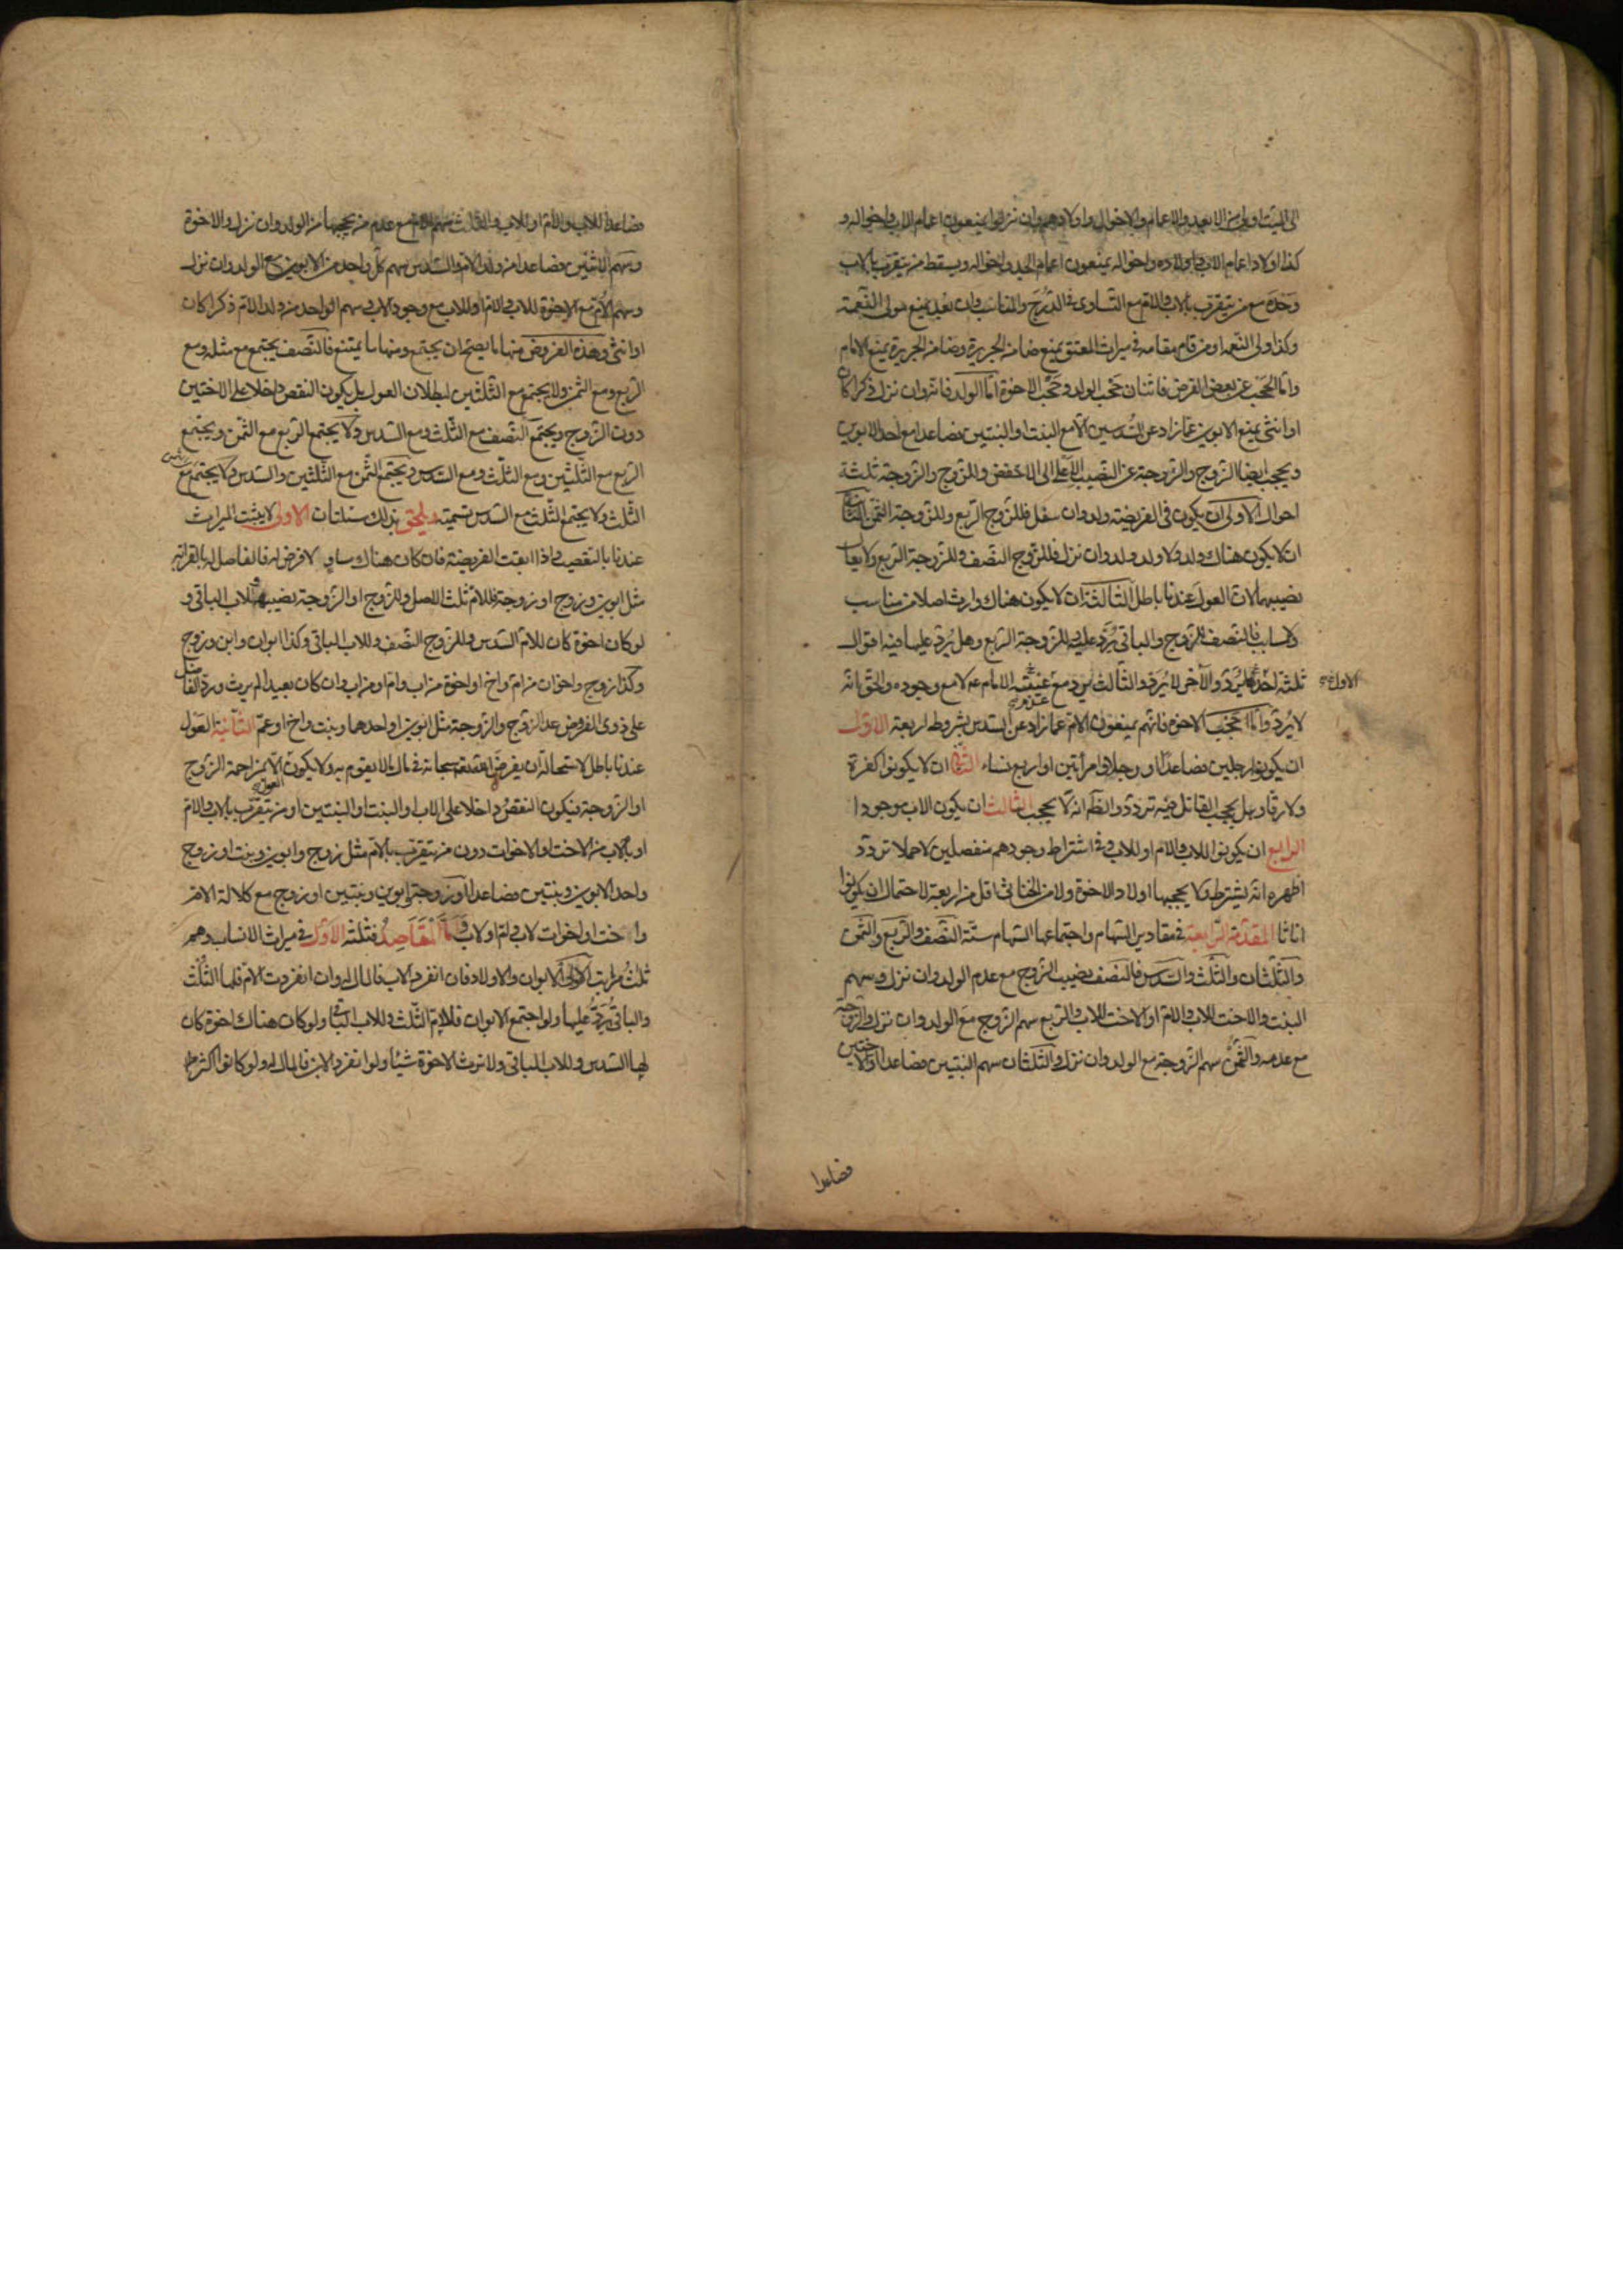 الى الميت اولى من الابعد والاعمام والاخوال واولادهم وان نزلوا يمنعون اعمام الاب واخواله و
كذا اولاد اعمام الاب واولاده واخواله يمنعون اعمام الجد واخواله ويسقط من يتقرب بالاب
وحده مع من يتقرب بالاب والام مع التساوى فى الدرج والمناسب وان بعد يمنع مولى النعمة
وكذا ولى النعمة او من قام مقامه فى ميراث المعتق يمنع ضامن الجريرة وضامن الجريرة يمنع الامام
واما الحجب عن بعض الفرض فاثنان حجب الولد وحجب الاخوة اما الولد فانه وان نزل ذكرا كان
او انثى يمنع الابوين عما زاد عن السدسين الا مع البنت او البنتين فصاعدا مع احد الابوين
ويحجب ايضا الزوج والزوجة عن النصيب الاعلى الى الاخفض وللزوج والزوجة ثلثة
احوال الاولى ان يكون فى الفريضة ولد وان سفل فللزوج الربع وللزوجة الثمن الثانية
ان لا يكون هناك ولد ولا ولد ولد وان نزل فللزوج النصف وللزوجة الربع ولا يعال
نصيبهما لان العول عندنا باطل الثالثة ان لا يكون هناك وارث اصلا من مناسب
ولا مسابب فالنصف للزوج والباقى يرد عليه وللزوجة الربع وهل يرد عليها فيه اقوال
ثلثة احدها يرد والآخر لا يرد والثالث يرد مع غيبة الامام عم لا مع وجوده والحق انه
الاول
عدم
لا يرد واما حجب الاخوة فانهم يمنعون الام عما زاد عن السدس بشروط اربعة الاول
ان يكونوا رجلين فصاعدا او رجلا وامرأتين او اربع نساء الثانى ان لا يكونوا كفرة
ولا رقا وهل يحجب القاتل فيه تردد والظ انه لا يحجب الثالث ان يكون الاب موجودا
الرابع ان يكونوا للاب والام او للاب وفى اشتراط وجودهم منفصلين لا حملا تردد
اظهره انه يشترط ولا يحجبها اولاد الاخوة ولا من الخناثى اقل من اربعة لاحتمال ان يكونوا
اناثا المقدمة الرابعة فى مقادير السهام واجتماعها السهام ستة النصف والربع والثمن
والثلثان والثلث والسدس فالنصف نصيب الزوج مع عدم الولد وان نزل وسهم
البنت والاخت للاب والام او الاخت للاب والربع سهم الزوج مع الولد وان نزل والزوجة
مع عدمه والثمن سهم الزوجة مع الولد وان نزل والثلثان سهم البنتين فصاعدا والاختين
فصاعدا
فصاعدا للاب والام او للاب والثلث سهم الام مع عدم من يحجبها من الولد وان نزل والاخوة
وسهم الاثنين فصاعدا من ولد الام والسدس سهم كل واحد من الابوين مع الولد وان نزل
وسهم الام مع الاخوة للاب والام او للاب مع وجود الاب وسهم الواحد من ولد الام ذكرا كان
او انثى وهذه الفروض منها ما يصح ان يجتمع ومنها ما يمتنع فالنصف يجتمع مع مثله ومع
الربع ومع الثمن ولا يجتمع مع الثلثين لبطلان العول بل يكون النقص داخلا على الاختين
دون الزوج ويجتمع النصف مع الثلث ومع السدس ولا يجتمع الربع مع الثمن ويجتمع
الربع مع الثلثين ومع الثلث ومع السدس ويجتمع الثمن مع الثلثين والسدس ولا يجتمع مع
الثلث ولا يجتمع الثلث مع السدس تسمية ويلحق بذلك مسئلتان الاولى لا يثبت الميراث
عندنا بالتعصيب واذا ابقت الفريضة فان كان هناك مساو لا فرض له فالفاضل له بالقرابة
مثل ابوين وزوج او زوجة فللام ثلث الاصل وللزوج او الزوجة نصيبه وللاب الباقى و
لو كان اخوة كان للام السدس وللزوج النصف وللاب الباقى وكذا ابوان وابن وزوج
وكذا زوج واخوان من ام واخ او اخوة من اب وام او من اب وان كان بعيدا لم يرث ورد الفاضل
على ذوى الفروض عدا الزوج والزوجة مثل ابوين او احدهما وبنت واخ او عم الثانية العول
عندنا باطل لاستحالة ان يفرض الله سبحانه فى مال ما لا يقوم به ولا يكون الا بمزاحمة الزوج
العول
او الزوجة فيكون النقص داخلا على الاب او البنت او البنتين او من يتقرب بالاب والام
او بالاب من الاخت او الاخوات دون من يتقرب بالام مثل زوج وابوين وبنت او زوج
واحد الابوين وبنتين فصاعدا او زوجة وابوين وبنتين او زوج مع كلالة الام
واخت او اخوات لاب وام او لاب واما المقاصد فثلثة الاول فى ميراث الانساب وهم
ثلث مراتب الاولى الابوان والاولاد فان انفرد الاب فالمال له وان انفردت الام فلها الثلث
والباقى يرد عليها ولو اجتمع الابوان فللام الثلث وللاب الباقى ولو كان هناك اخوة كان
لها السدس وللاب الباقى ولا ترث الاخوة شيئا ولو انفرد الابن فالمال له ولو كانوا اكثر